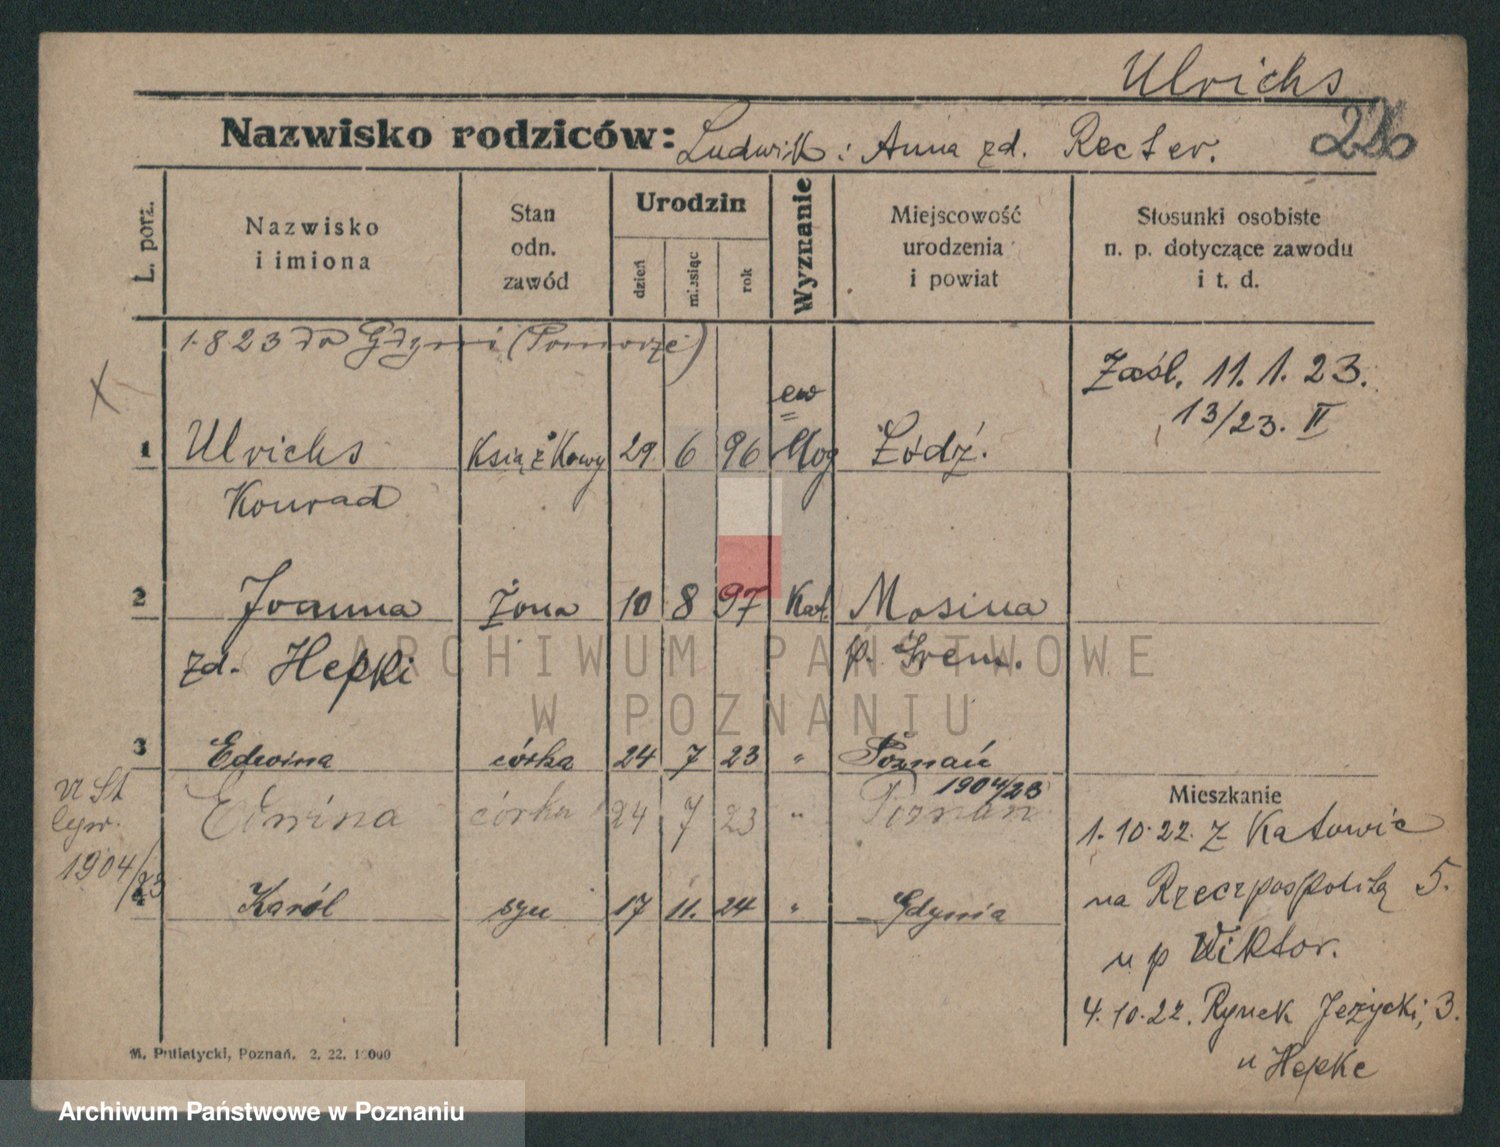 Ulrichs
Nazwisko rodziców: Ludwik i Anna zd. Recter. 226
L. porz.
Nazwisko i imiona
Stan odn. zawód
Urodzin
dzień
miesiąc
rok
Wyznanie
Miejscowość urodzenia i powiat
Stosunki osobiste n. p. dotyczące zawodu i t. d.
1. 8 23 do Gdyni (Pomorze)
X
Zaśl. 11. 1. 23.
13/23. II
ew
1 Ulrichs Książkowy 29 6 96 Łódź.
Konrad
2 Joanna żona 10 8 97 Kat. Mosina
zd. Hepki p. Śrem.
ARCHIWUM PAŃSTWOWE
W POZNANIU
3 Edwina córka 24 7 23 " Poznań
1904/23
Edwina córka 24 7 23 " Poznań
VI St
1904/23
Mieszkanie
1. 10. 22. z Katowic
na Rzeczpospolitą 5.
u p Wiktor.
4 Karól syn 17 11. 24 " Gdynia
4. 10. 22. Rynek Jeżycki, 3.
u Hepke
M. Putiatycki, Poznań. 2. 22. 10000
Archiwum Państwowe w Poznaniu